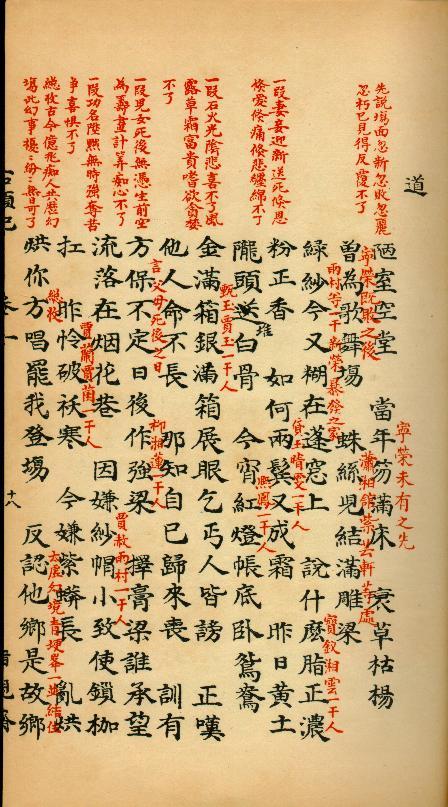 道
先說塲面忽新忽敗忽麗
忽朽已見得反覆不了
一段妻妾迎新送死倐恩
倐愛倐痛倐悲纏綿不了
一段石火光陰悲喜不了風
露草霜富貴嗜欲貪婪
不了
一段児女死後無憑生前空
為籌畫計算痴心不了
一段功名陞黜無時强奪苦
爭喜惧不了
總收古今億兆痴人共歷幻
塲此幻事擾擾紛紛無日可了
陋室空堂 當年笏滿床 衰草枯楊
寧榮未有之先
寧榮既敗之後
曾為歌舞塲 蛛絲児結滿雕梁
瀟湘舘紫云軒等處
雨村等一干新榮暴發之家
綠紗今又糊在蓬窓上 說什麽脂正濃
寳釵湘雲一干人
粉正香 如何兩鬓又成霜 昨日黃土
貸玉晴雯一干人
隴頭送白骨 今宵紅燈帳底卧鴛鴦
堆
熙鳳一干人
金滿箱銀滿箱展眼乞丐人皆謗 正嘆
甄玉賈玉一干人
他人命不長 那知自已歸來喪 訓有
方保不定日後作强梁 擇膏梁誰承望
言父母死後之日
柳湘蓮一干人
流落在烟花巷 因嫌紗帽小致使鎖枷
賈赦雨村一干人
扛 昨怜破袄寒 今嫌紫蟒長 亂烘
賈蘭賈菌一干人
烘你方唱罷我登塲 反認他鄉是故鄉
總收
太虛幻境青埂峯一並結住
十八